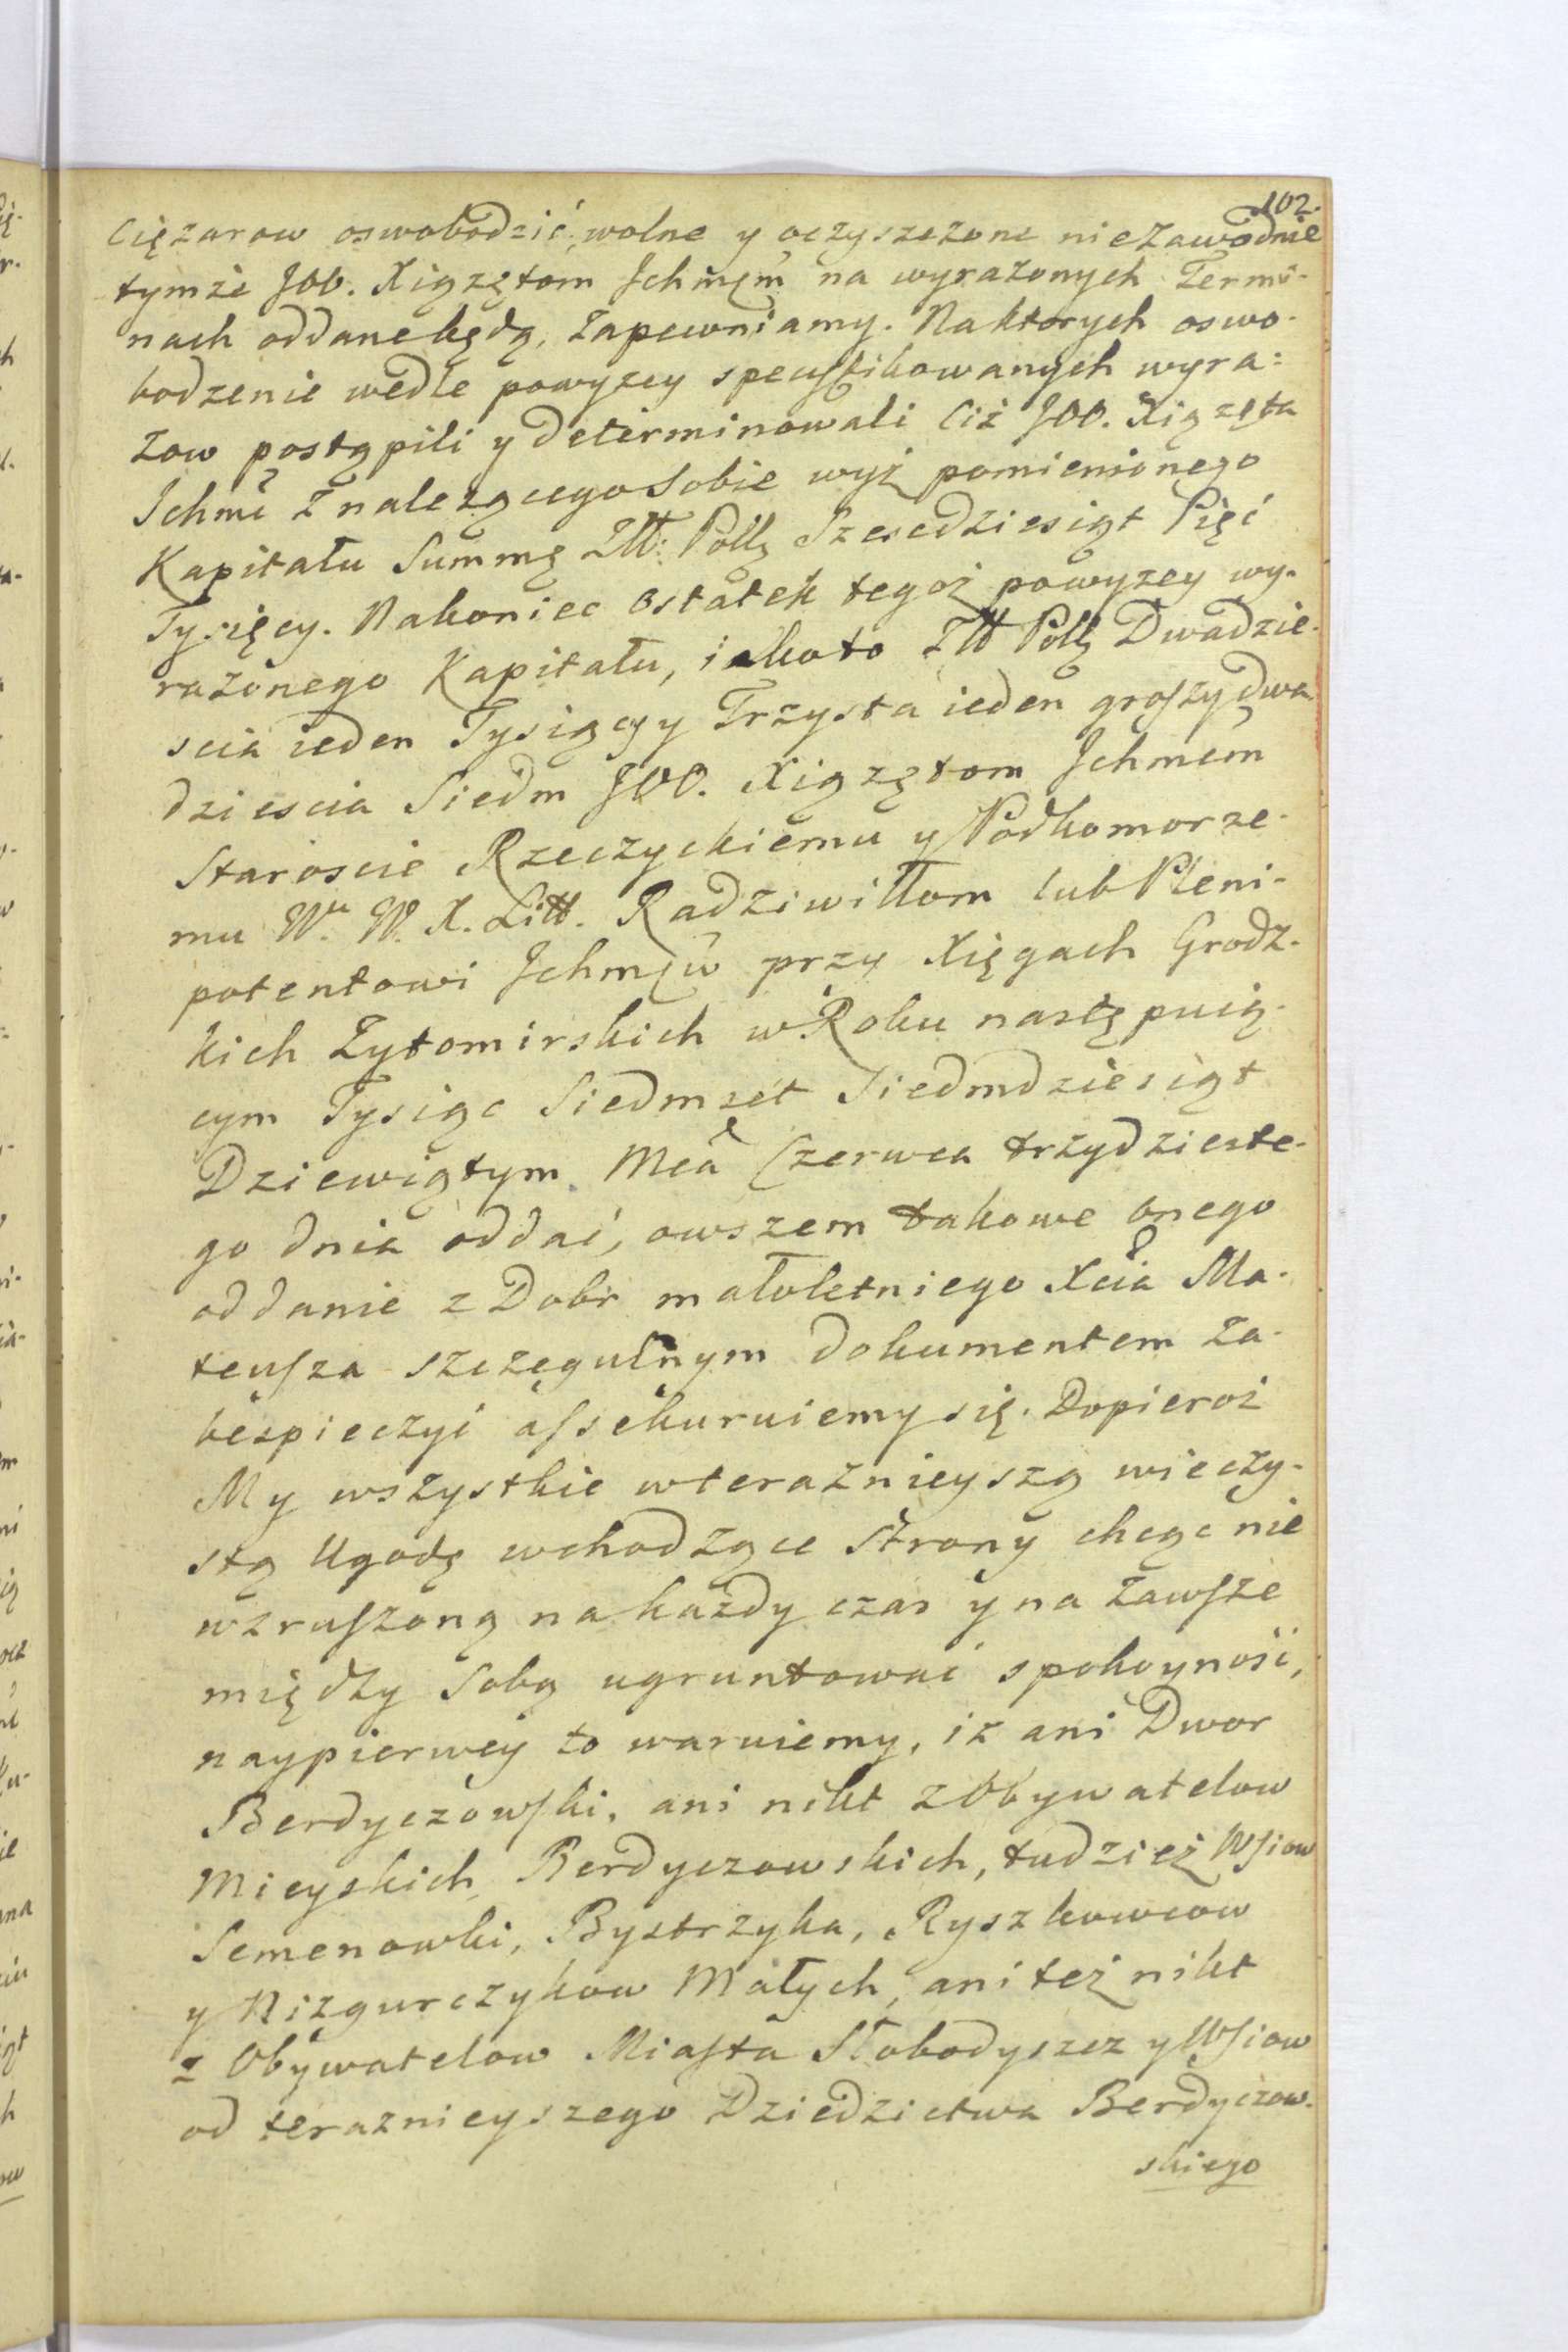 102.
Ciężarow oswobodzić, wolne y oczyszczone niezawodnie
tymże JOO. Xiążętom Ichmćm na wyrażonych Termi-
nach oddane będą, Zapewniamy. Na ktorych oswo-
bodzenie wedle powyzey specyfikowanych wyra-
zow postąpili y determinowali Ciż JOO. Xiążęta
Ichmć z należącego Sobie wyż pomienionego
Kapitału Summę Złł: Pollę Szescdziesiąt Pięć
Tysięcy. Nakoniec Ostatek tegoż powyzey wy-
rażonego Kapitału, iakoto Złł Pollę Dwadzie-
scia ieden Tysiącgy Trzysta ieden groszy dwa
dziescia Siedm JOO. Xiążętom Ichmćm
Staroscie Rzeczyckiemu y Podkomorze-
mu Wu. W. X. Litt. Radziwiłłom lub Pleni-
potentowi Ichmćw przy Xięgach Grodz-
kich Zytomirskich w Roku następuią-
cym Tysiąc Siedmset Siedmdziesiąt
Dziewiątym. Mca Czerwca trzydzieste-
go dnia oddać, owszem takowe onego
oddanie z Dobr małoletniego Xcia Ma-
teusza szczegulnym dokumentem Za-
bespieczyć assekuruiemy się. Dopieroż
My wszystkie w teraznieyszą wieczy-
stą Ugodę wchodzące Strony chcąc nie
wzruszoną na każdy czas y na zawsze
między Sobą ugruntować spokoyność,
naypierwey to waruiemy, iż ani Dwor
Berdyczowski, ani nikt z Obywatelow
Mieyskich Berdyczowskich, tudzież Wsiow
Semenowki, Bystrzyka, Ryszkowcow
y Nizgurczykow Małych, ani też nikt
z Obywatelow Miasta Słobodyszcz y Wsiow
od teraznieyszego Dziedzictwa Berdyczow-
skiego